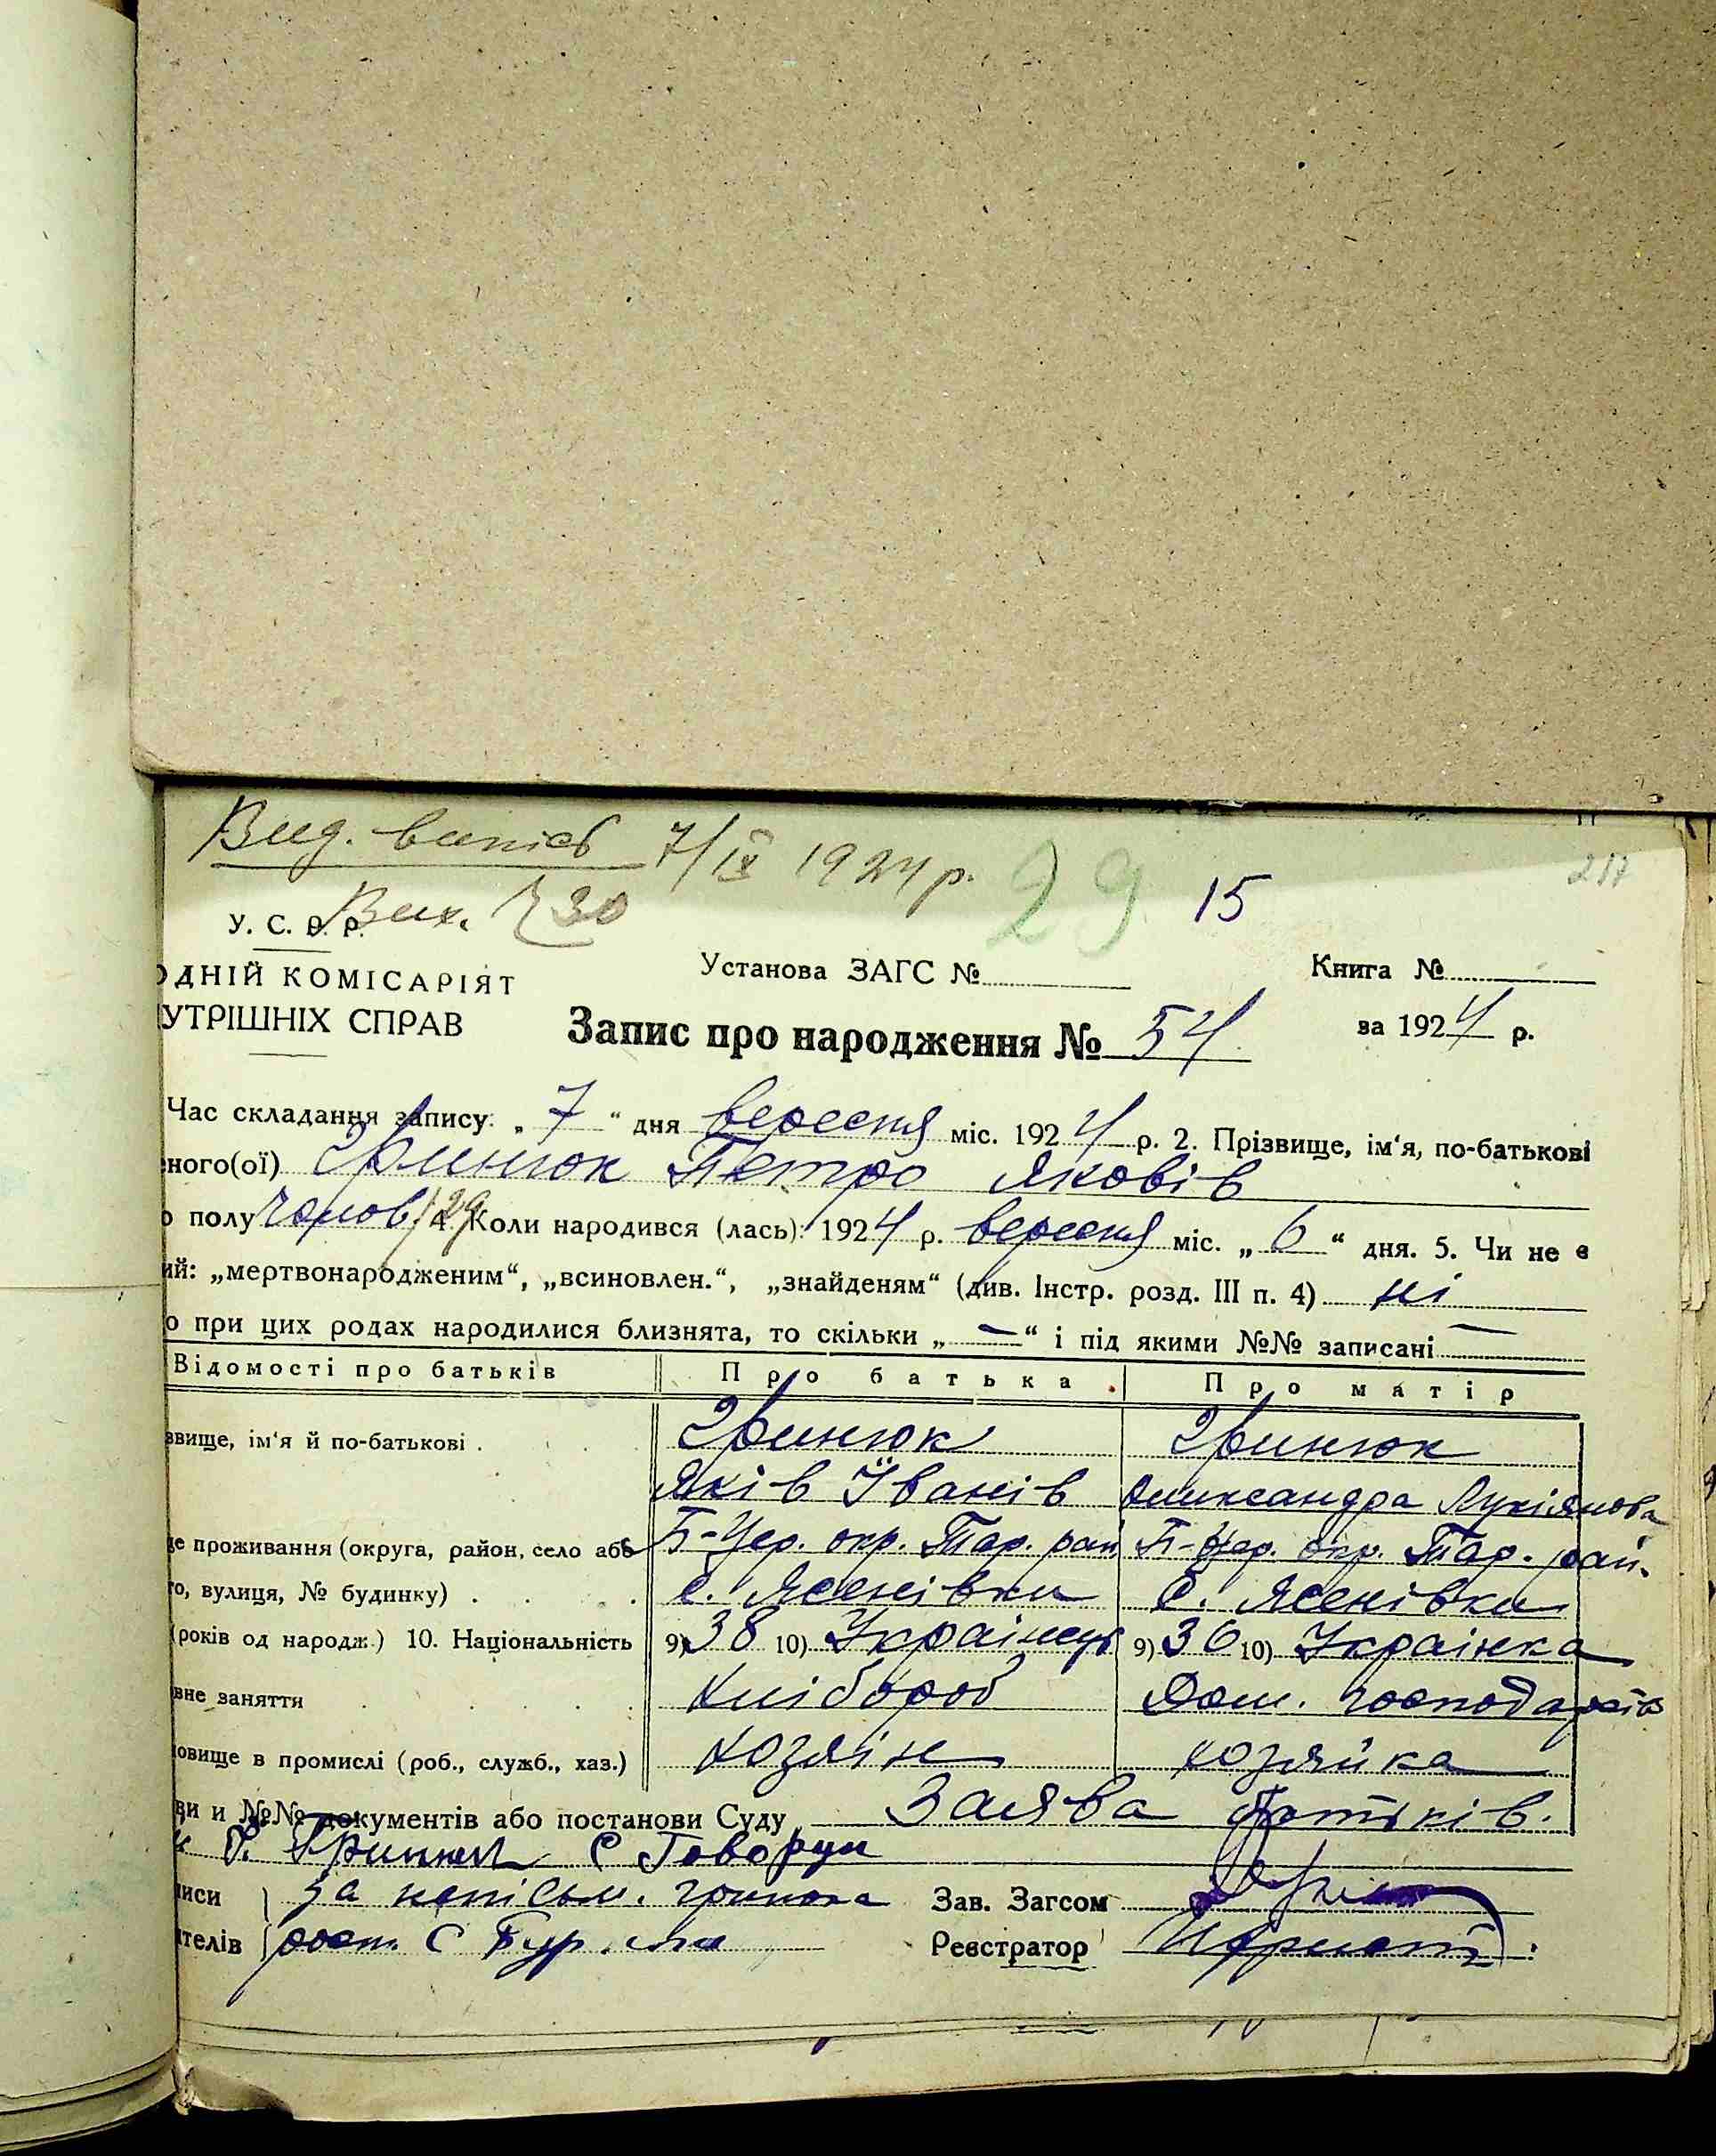 Вид. випісь 7/IX 1924 р.
29 15 217
Вих. № 30
У. С. Р. Р.
ОДНІЙ КОМІСАРІЯТ
УТРІШНІХ СПРАВ
Установа ЗАГС №
Книга №
Запис про народження № 54
за 1924 р.
Час складання запису: „7“ дня вересня міс. 1924 р. 2. Прізвище, ім‘я, по-батькові
ного(ої) Гринюк Петро Яковів
о полу чолов. /29 4. Коли народився (лась): 1924 р. вересня міс. „6“ дня. 5. Чи не є
ий: „мертвонародженим“, „всиновлен.“, „знайденям“ (див. Інстр. розд. III п. 4) ні
о при цих родах народилися близнята, то скільки „—“ і під якими №№ записані —
Відомості про батьків Про батька Про матір
звище, ім‘я й по-батькові Гринюк Гринюк
Яків Іванів Олександра Лукіянова
е проживання (округа, район, село або Б-Цер. окр. Тар. рай. Б-Цер. окр. Тар. рай.
то, вулиця, № будинку) с. Ясенівка с. Ясенівка
(років од народж.) 10. Національність 9) 38 10) Українець 9) 36 10) Українка
вне заняття Хлібороб Дом. господарств
овище в промислі (роб., служб., хаз.) хозяін хозяйка
ви и №№ документів або постанови Суду Заява батьків.
С Говорун
иси за непісьм. Гринюка Зав. Загсом
ителів росп. С Реєстратор